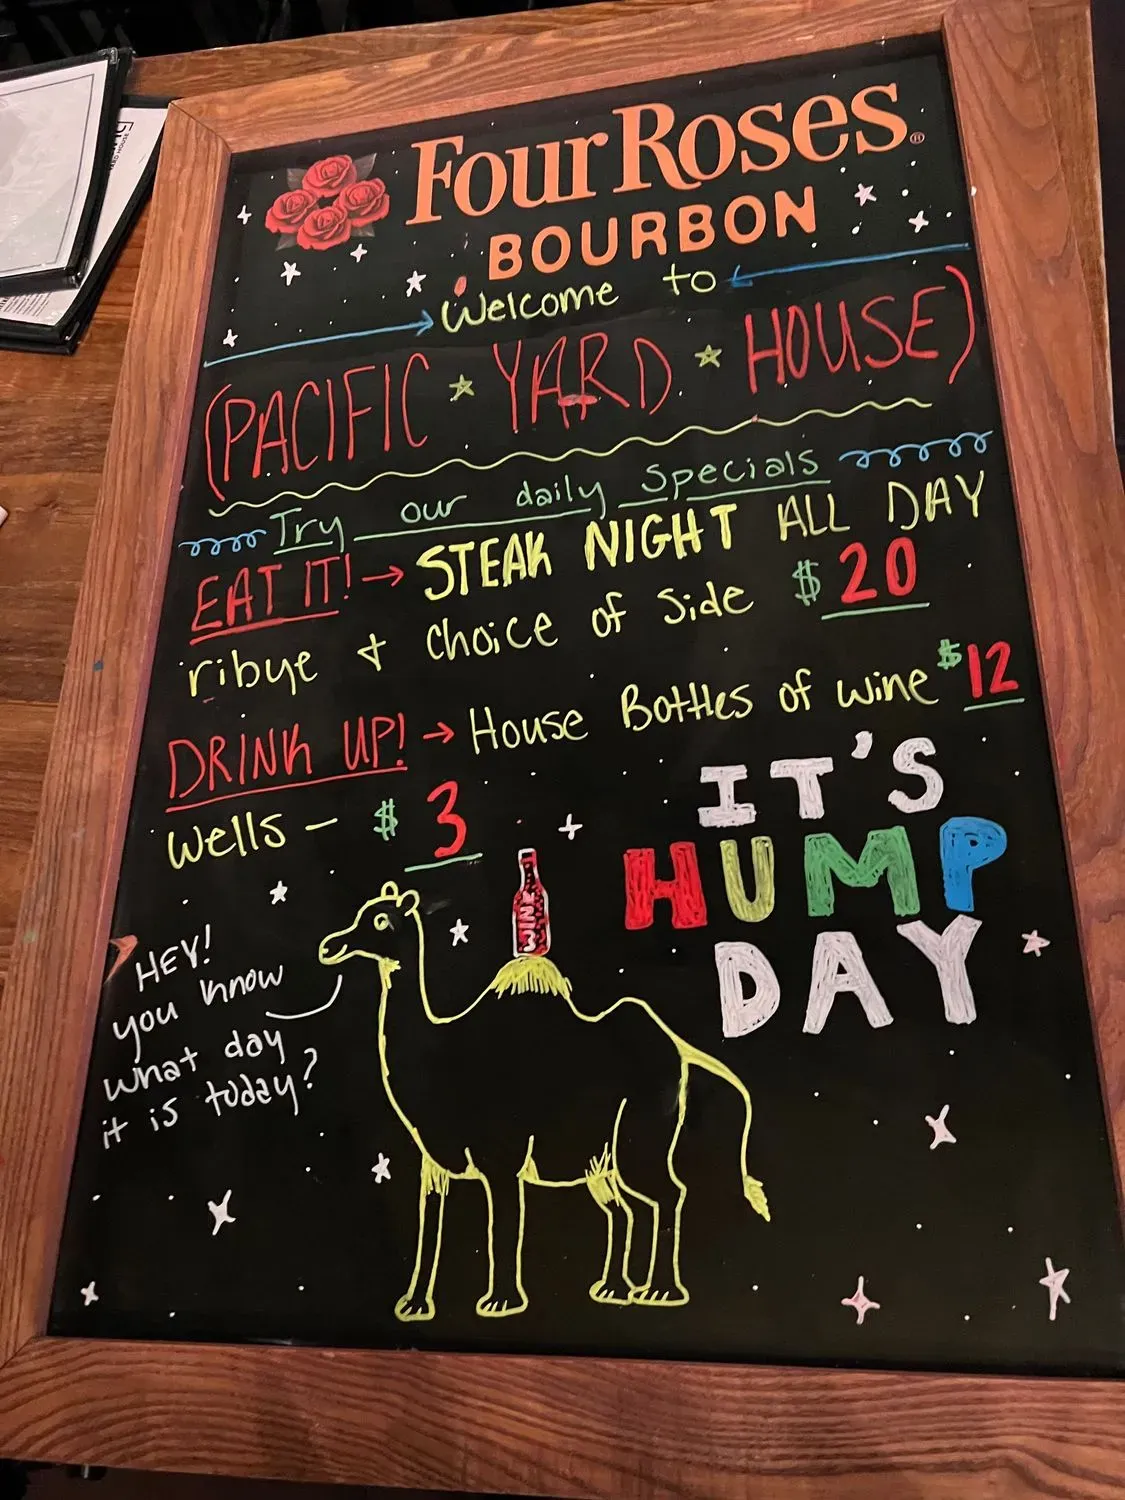 Four Roses®
BOURBON
Welcome to
(PACIFIC ☆ YARD ☆ HOUSE)
Try our daily specials
EAT IT! → STEAK NIGHT ALL DAY
ribye & choice of side $20
DRINK UP! → House Bottles of wine $12
Wells - $3
IT'S
HUMP
DAY
WINE
HEY!
you know
what day
it is today?